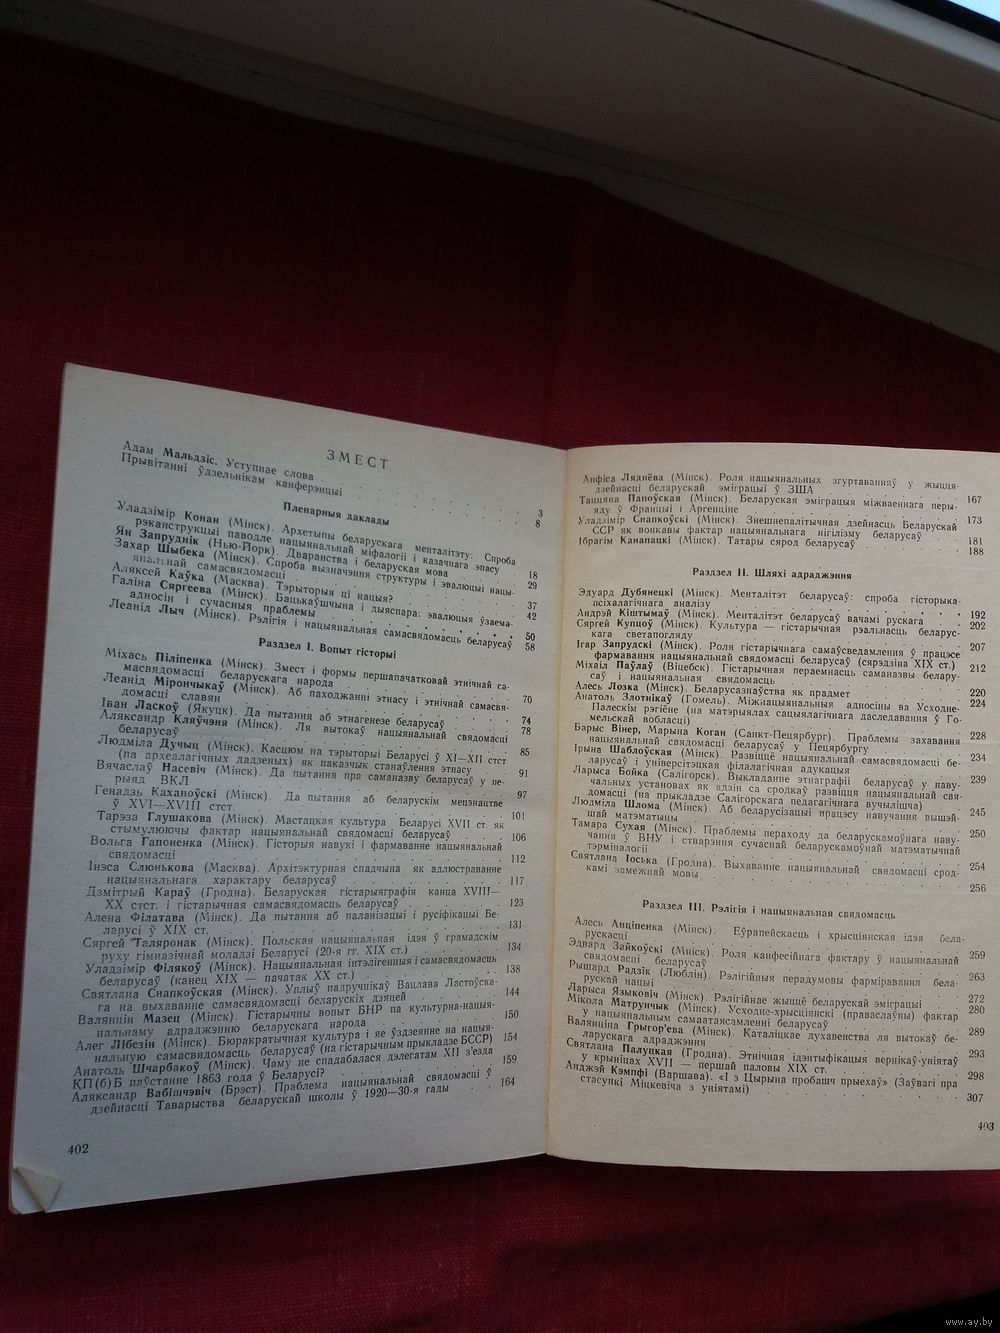 ЗМЕСТ
Адам Мальдзіс. Уступнае слова . . . . . 3
Прывітанні ўдзельнікам канферэнцыі . . . . . 8
Пленарныя даклады
Уладзімір Конан (Мінск). Архетыпы беларускага менталітэту: Спроба
рэканструкцыі паводле нацыянальнай міфалогіі і казачнага эпасу . 18
Ян Запруднік (Нью-Йорк). Дваранства і беларуская мова . . . 29
Захар Шыбека (Мінск). Спроба вызначэння структуры і эвалюцыі нацы-
янальнай самасвядомасці . . . . . 37
Аляксей Каўка (Масква). Тэрыторыя ці нацыя? . . . . . 42
Галіна Сяргеева (Мінск). Бацькаўшчына і дыяспара: эвалюцыя ўзаема-
адносін і сучасныя праблемы . . . . . 50
Леанід Лыч (Мінск). Рэлігія і нацыянальная самасвядомасць беларусаў 58
Раздзел I. Вопыт гісторыі
Міхась Піліпенка (Мінск). Змест і формы першапачатковай этнічнай са-
масвядомасці беларускага народа . . . . . 70
Леанід Мірончыкаў (Мінск). Аб паходжанні этнасу і этнічнай самасвя-
домасці славян . . . . . 74
Іван Ласкоў (Якуцк). Да пытання аб этнагенезе беларусаў . . . 78
Аляксандр Кляўчэня (Мінск). Ля вытокаў нацыянальнай свядомасці
беларусаў . . . . . 85
Людміла Дучыц (Мінск). Касцюм на тэрыторыі Беларусі ў XI—XII стст
(па археалагічных дадзеных) як паказчык станаўлення этнасу . . 91
Вячаслаў Насевіч (Мінск). Да пытання пра саманазву беларусаў у пе-
рыяд ВКЛ . . . . . 97
Генадзь Каханоўскі (Мінск). Да пытання аб беларускім мецэнацтве
ў XVI—XVIII стст. . . . . . 101
Тарэза Глушакова (Мінск). Мастацкая культура Беларусі XVII ст. як
стымулюючы фактар нацыянальнай свядомасці беларусаў . . . 106
Вольга Гапоненка (Мінск). Гісторыя навукі і фармаванне нацыянальнай
свядомасці . . . . . 112
Інэса Слюнькова (Масква). Архітэктурная спадчына як адлюстраванне
нацыянальнага характару беларусаў . . . . . 117
Дзмітрый Караў (Гродна). Беларуская гістарыяграфія канца XVIII—
XX стст. і гістарычная самасвядомасць беларусаў . . . . . 123
Алена Філатава (Мінск). Да пытання аб паланізацыі і русіфікацыі Бе-
ларусі ў XIX ст. . . . . . 131
Сяргей Таляронак (Мінск). Польская нацыянальная ідэя ў грамадскім
руху гімназічнай моладзі Беларусі (20-я гг. XIX ст.) . . . . 134
Уладзімір Філякоў (Мінск). Нацыянальная інтэлігенцыя і самасвядомасць
беларусаў (канец XIX — пачатак XX ст.) . . . . . 138
Святлана Снапкоўская (Мінск). Уплыў падручнікаў Вацлава Ластоўска-
га на выхаванне самасвядомасці беларускіх дзяцей . . . . 144
Валянцін Мазец (Мінск). Гістарычны вопыт БНР па культурна-нацыя-
нальнаму адраджэнню беларускага народа . . . . . 150
Алег Лібезін (Мінск). Бюракратычная культура і яе ўздзеянне на нацыя-
нальную самасвядомасць беларусаў (на гістарычным прыкладзе БССР) 154
Анатоль Шчарбакоў (Мінск). Чаму не спадабалася дэлегатам XII з'езда
КП(б)Б паўстанне 1863 года ў Беларусі? . . . . . 159
Аляксандр Вабішчэвіч (Брэст). Праблема нацыянальнай свядомасці ў
дзейнасці Таварыства беларускай школы ў 1920—30-я гады . . . 164
402
Анфіса Ляднёва (Мінск). Роля нацыянальных згуртаванняў у жыцця-
дзейнасці беларускай эміграцыі ў ЗША . . . . . 167
Таццяна Папоўская (Мінск). Беларуская эміграцыя міжваеннага перы-
яду ў Францыі і Аргенціне . . . . . 173
Уладзімір Снапкоўскі (Мінск). Знешнепалітычная дзейнасць Беларускай
ССР як вонкавы фактар нацыянальнага нігілізму беларусаў . . 181
Ібрагім Канапацкі (Мінск). Татары сярод беларусаў . . . . . 188
Раздзел II. Шляхі адраджэння
Эдуард Дубянецкі (Мінск). Менталітэт беларусаў: спроба гісторыка-
псіхалагічнага аналізу . . . . . 192
Андрэй Кіштымаў (Мінск). Менталітэт беларусаў вачамі рускага . . 202
Сяргей Купцоў (Мінск). Культура — гістарычная рэальнасць беларус-
кага светапогляду . . . . . 207
Ігар Запрудскі (Мінск). Роля гістарычнага самаўсведамлення ў працэсе
фармавання нацыянальнай свядомасці беларусаў (сярэдзіна XIX ст.) 212
Міхаіл Паўлаў (Віцебск). Гістарычная пераемнасць саманазвы белару-
саў і нацыянальная свядомасць . . . . . 220
Алесь Лозка (Мінск). Беларусазнаўства як прадмет . . . . . 224
Анатоль Злотнікаў (Гомель). Міжнацыянальныя адносіны ва Усходне-
Палескім рэгіёне (на матэрыялах сацыялагічнага даследавання ў Го-
мельскай вобласці) . . . . . 228
Барыс Вінер, Марына Коган (Санкт-Пецярбург). Праблемы захавання
нацыянальнай свядомасці беларусаў у Пецярбургу . . . . . 234
Ірына Шаблоўская (Мінск). Развіццё нацыянальнай самасвядомасці бе-
ларусаў і універсітэцкая філалагічная адукацыя . . . . . 239
Ларыса Бойка (Салігорск). Выкладанне этнаграфіі беларусаў у наву-
чальных установах як адзін са сродкаў развіцця нацыянальнай свя-
домасці (на прыкладзе Салігорскага педагагічнага вучылішча) . . 245
Людміла Шлома (Мінск). Аб беларусізацыі працэсу навучання вышэй-
шай матэматыцы . . . . . 250
Тамара Сухая (Мінск). Праблемы пераходу да беларускамоўнага наву-
чання ў ВНУ і стварэння сучаснай беларускамоўнай матэматычнай
тэрміналогіі . . . . . 254
Святлана Іоська (Гродна). Выхаванне нацыянальнай свядомасці срод-
камі замежнай мовы . . . . . 256
Раздзел III. Рэлігія і нацыянальная свядомасць
Алесь Анціпенка (Мінск). Еўрапейскасць і хрысціянская ідэя бела-
рускасці . . . . . 259
Эдвард Зайкоўскі (Мінск). Роля канфесійнага фактару ў нацыянальнай
свядомасці беларусаў . . . . . 263
Рышард Радзік (Люблін). Рэлігійныя перадумовы фарміравання бела-
рускай нацыі . . . . . 272
Ларыса Языковіч (Мінск). Рэлігійнае жыццё беларускай эміграцыі . . 280
Мікола Матрунчык (Мінск). Усходне-хрысціянскі (праваслаўны) фактар
у нацыянальным самаатаясамленні беларусаў . . . . . 289
Валянціна Грыгор'ева (Мінск). Каталіцкае духавенства ля вытокаў бе-
ларускага адраджэння . . . . . 293
Святлана Палуцкая (Гродна). Этнічная ідэнтыфікацыя вернікаў-уніятаў
у крыніцах XVII — першай паловы XIX ст. . . . . . 298
Анджэй Кэмпфі (Варшава). «І з Цырына пробашч прыехаў» (Заўвагі пра
стасункі Міцкевіча з уніятамі) . . . . . 307
403
www.ay.by